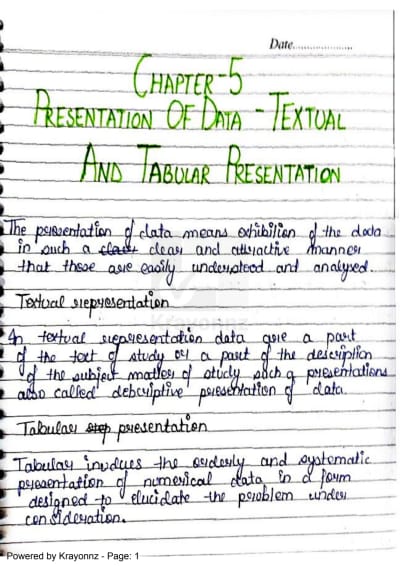 Date....................
CHAPTER-5
PRESENTATION OF DATA - TEXTUAL
AND TABULAR PRESENTATION
The presentation of data means exhibition of the data
in such a clear and attractive manner
that these are easily understood and analysed.
Textual representation
In textual representation data are a part
of the text of study or a part of the description
of the subject matter of study such a presentations
also called debcriptive presentation of data.
Tabular presentation
Tabular involves the orderly and systematic
presentation of numerical data in a form
designed to elucidate the problem under
consideration.
Krayonnz
Powered by Krayonnz - Page: 1